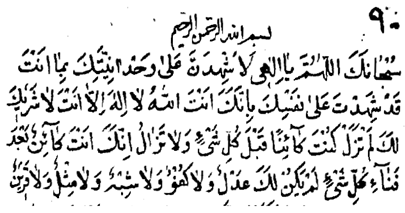 ٩٠
بسم الله الرحمن الرحيم
سُبْحَانَكَ اللّٰهُمَّ يَا اِلٰهِى لَاُشْهِدَنَّكَ عَلىٰ وَحْدَانِيَّتِكَ بِمَا اَنْتَ
قَدْ شَهِدْتَ عَلىٰ نَفْسِكَ بِاَنَّكَ اَنْتَ اللّٰهُ لَا اِلٰهَ اِلَّا اَنْتَ لَا شَرِيْكَ
لَكَ لَمْ تَزَلْ كُنْتَ كَآئِنًا قَبْلَ كُلِّ شَىْءٍ وَلَا تَزَالُ اِنَّكَ اَنْتَ كَآئِنٌ بَعْدَ
فَنَآءِ كُلِّ شَىْءٍ لَمْ يَكُنْ لَكَ عَدْلٌ وَلَا كُفْوٌ وَلَا شِبْهٌ وَلَا مِثْلٌ وَلَا قَرِيْنٌ